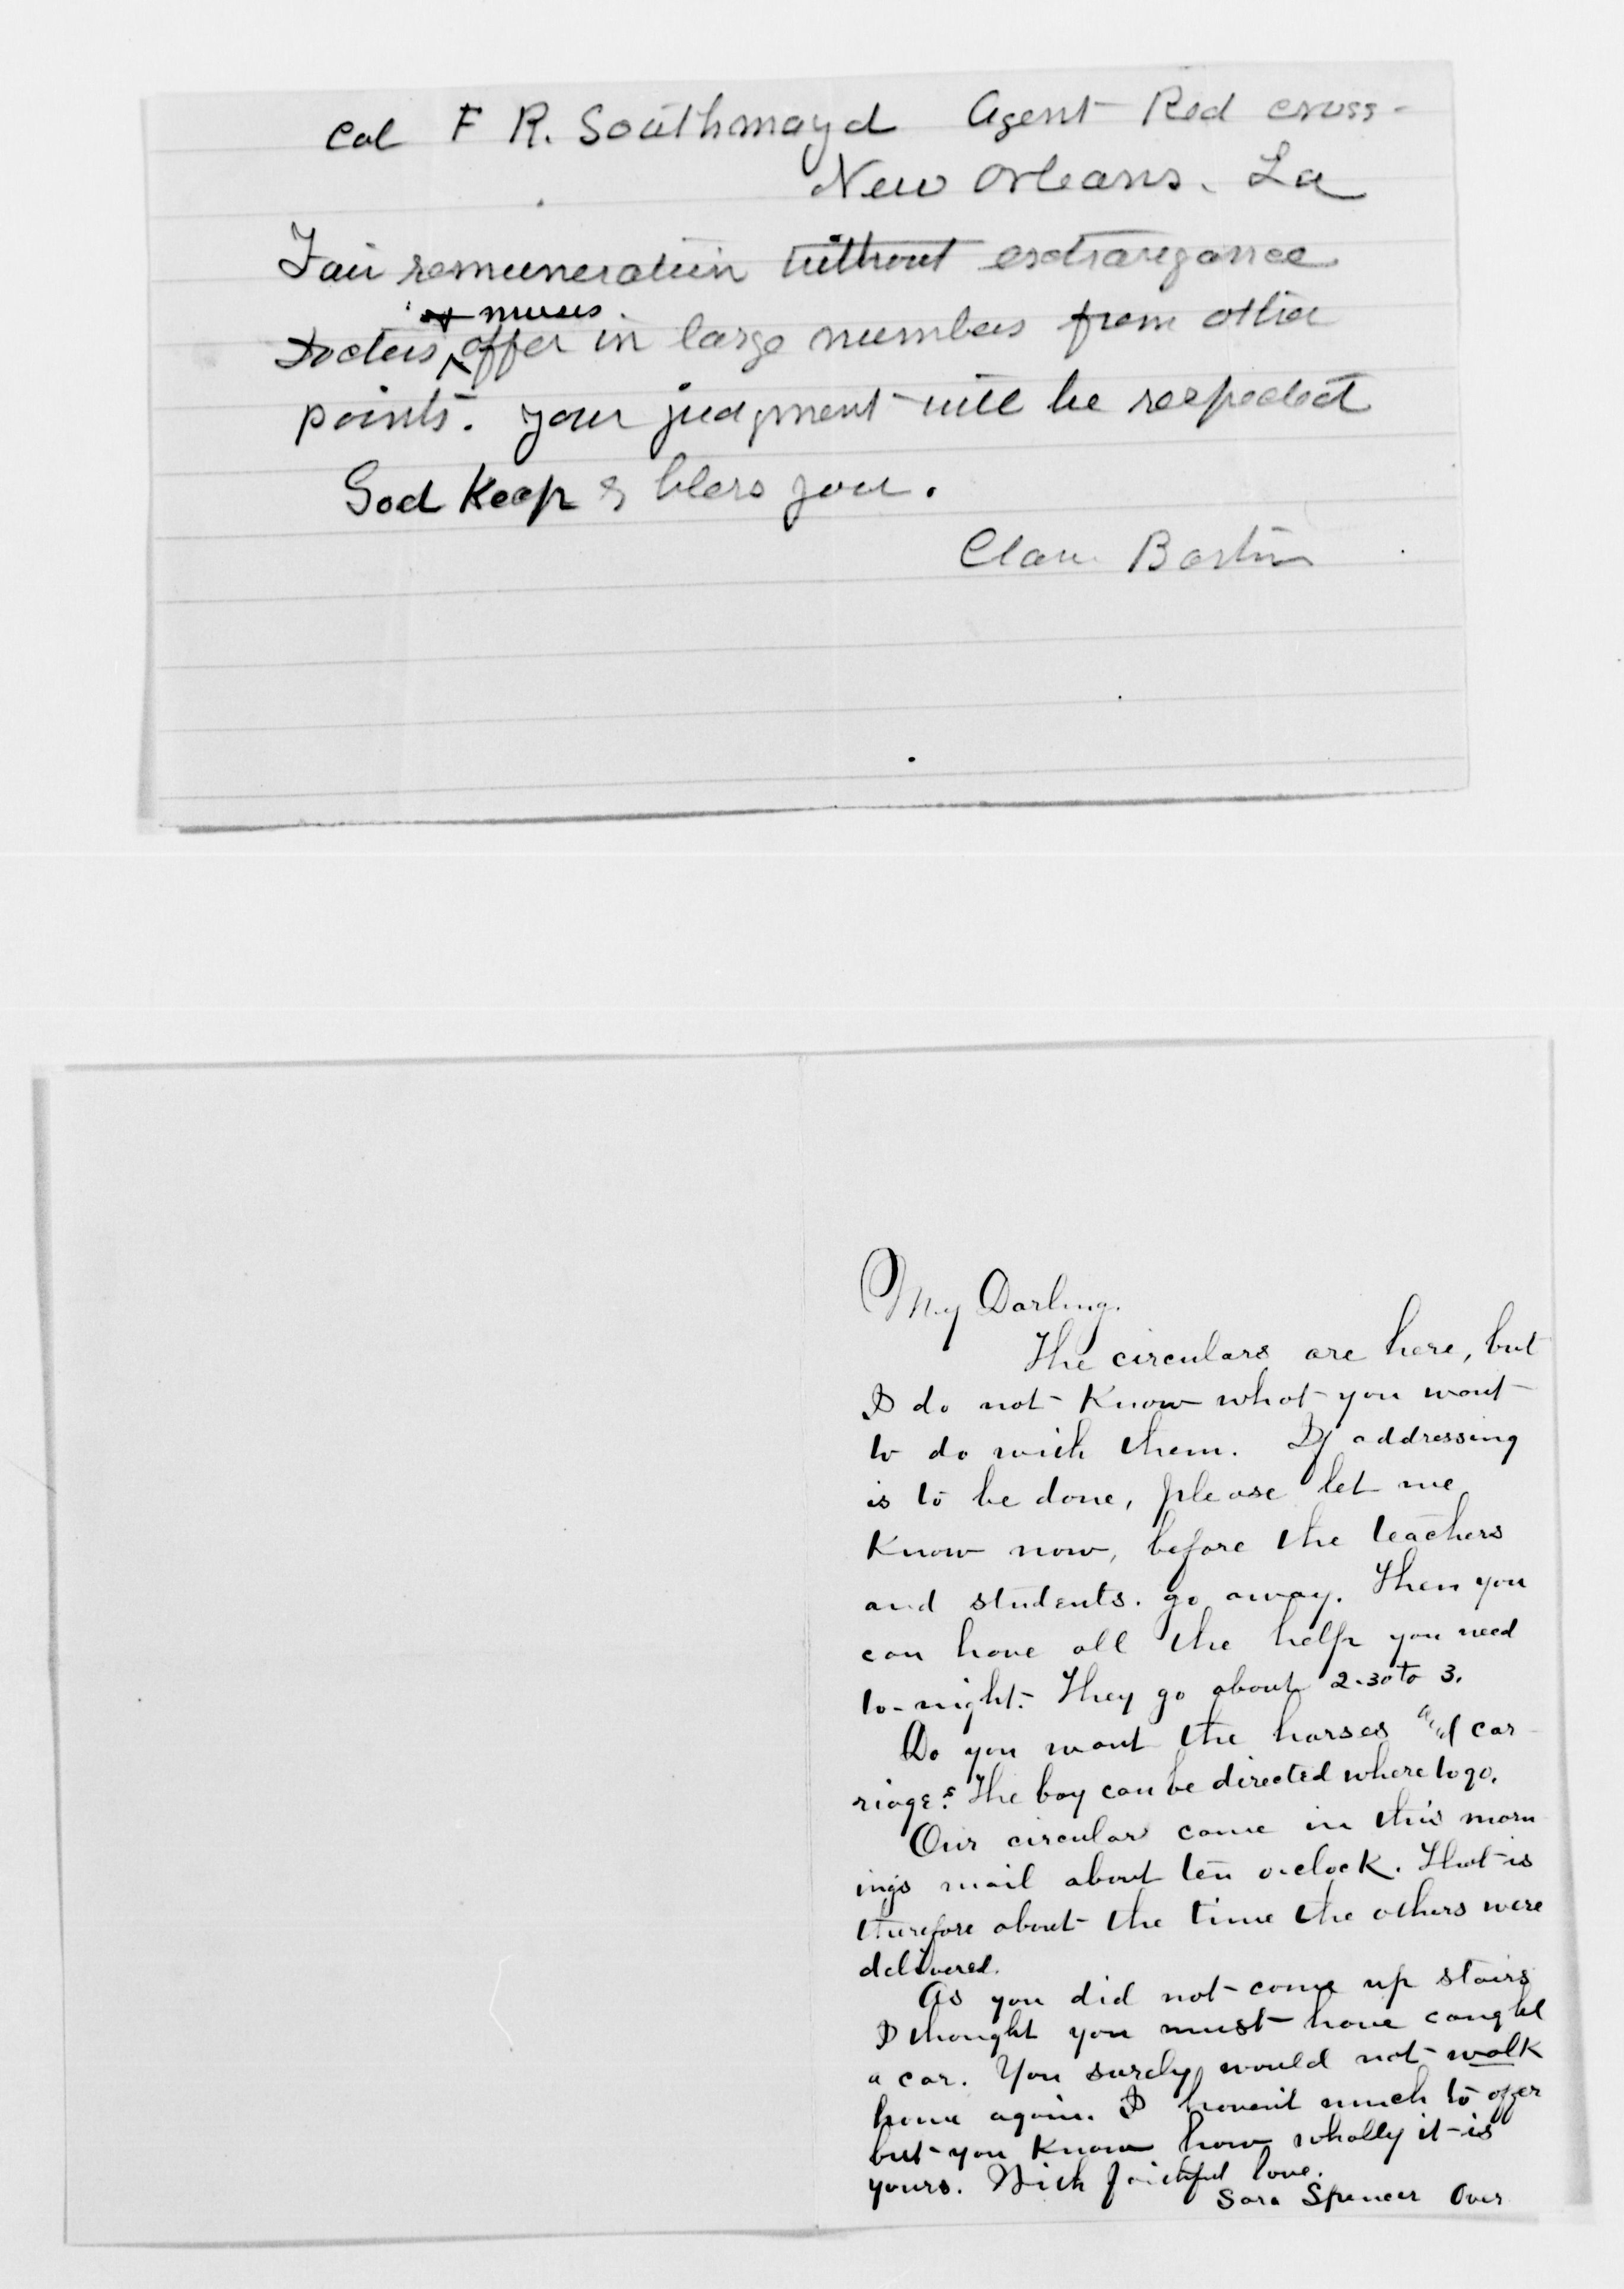 Col F R. Southmayd Agent Red Cross-
New Orleans. La
Fair remuneration without extravagance
& nurses
Doctors ^ offer in large numbers from other
points. your judgment will be respected
God Keep & bless you.
Clara Barton
My Darling.
The circulars are here, but
I do not Know what you want
to do with them. If addressing
is to be done, please let me
Know now, before the teachers
and students. go away. Then you
can have all the help you need
to-night. They go about 2.30 to 3.
Do you want the horses and car
riage? The boy can be directed where to go.
Our circulars came in this morn
ings mail about ten o.clock. That is
therefore about the time the others were
delivered.
As you did not come up stairs
I thought you must have caught
a car. You surely would not walk
home again. I haven't much to offer
but you Know how wholly it is
yours. With faithful love.
Sara Spencer Over